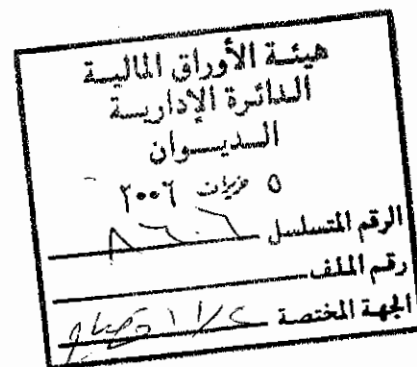 هيئة الأوراق المالية
الدائرة الإدارية
الديوان
٥ حزيران ٢٠٠٦
الرقم المتسلسل ٨٦٠٦
رقم الملف
الجهة المختصة